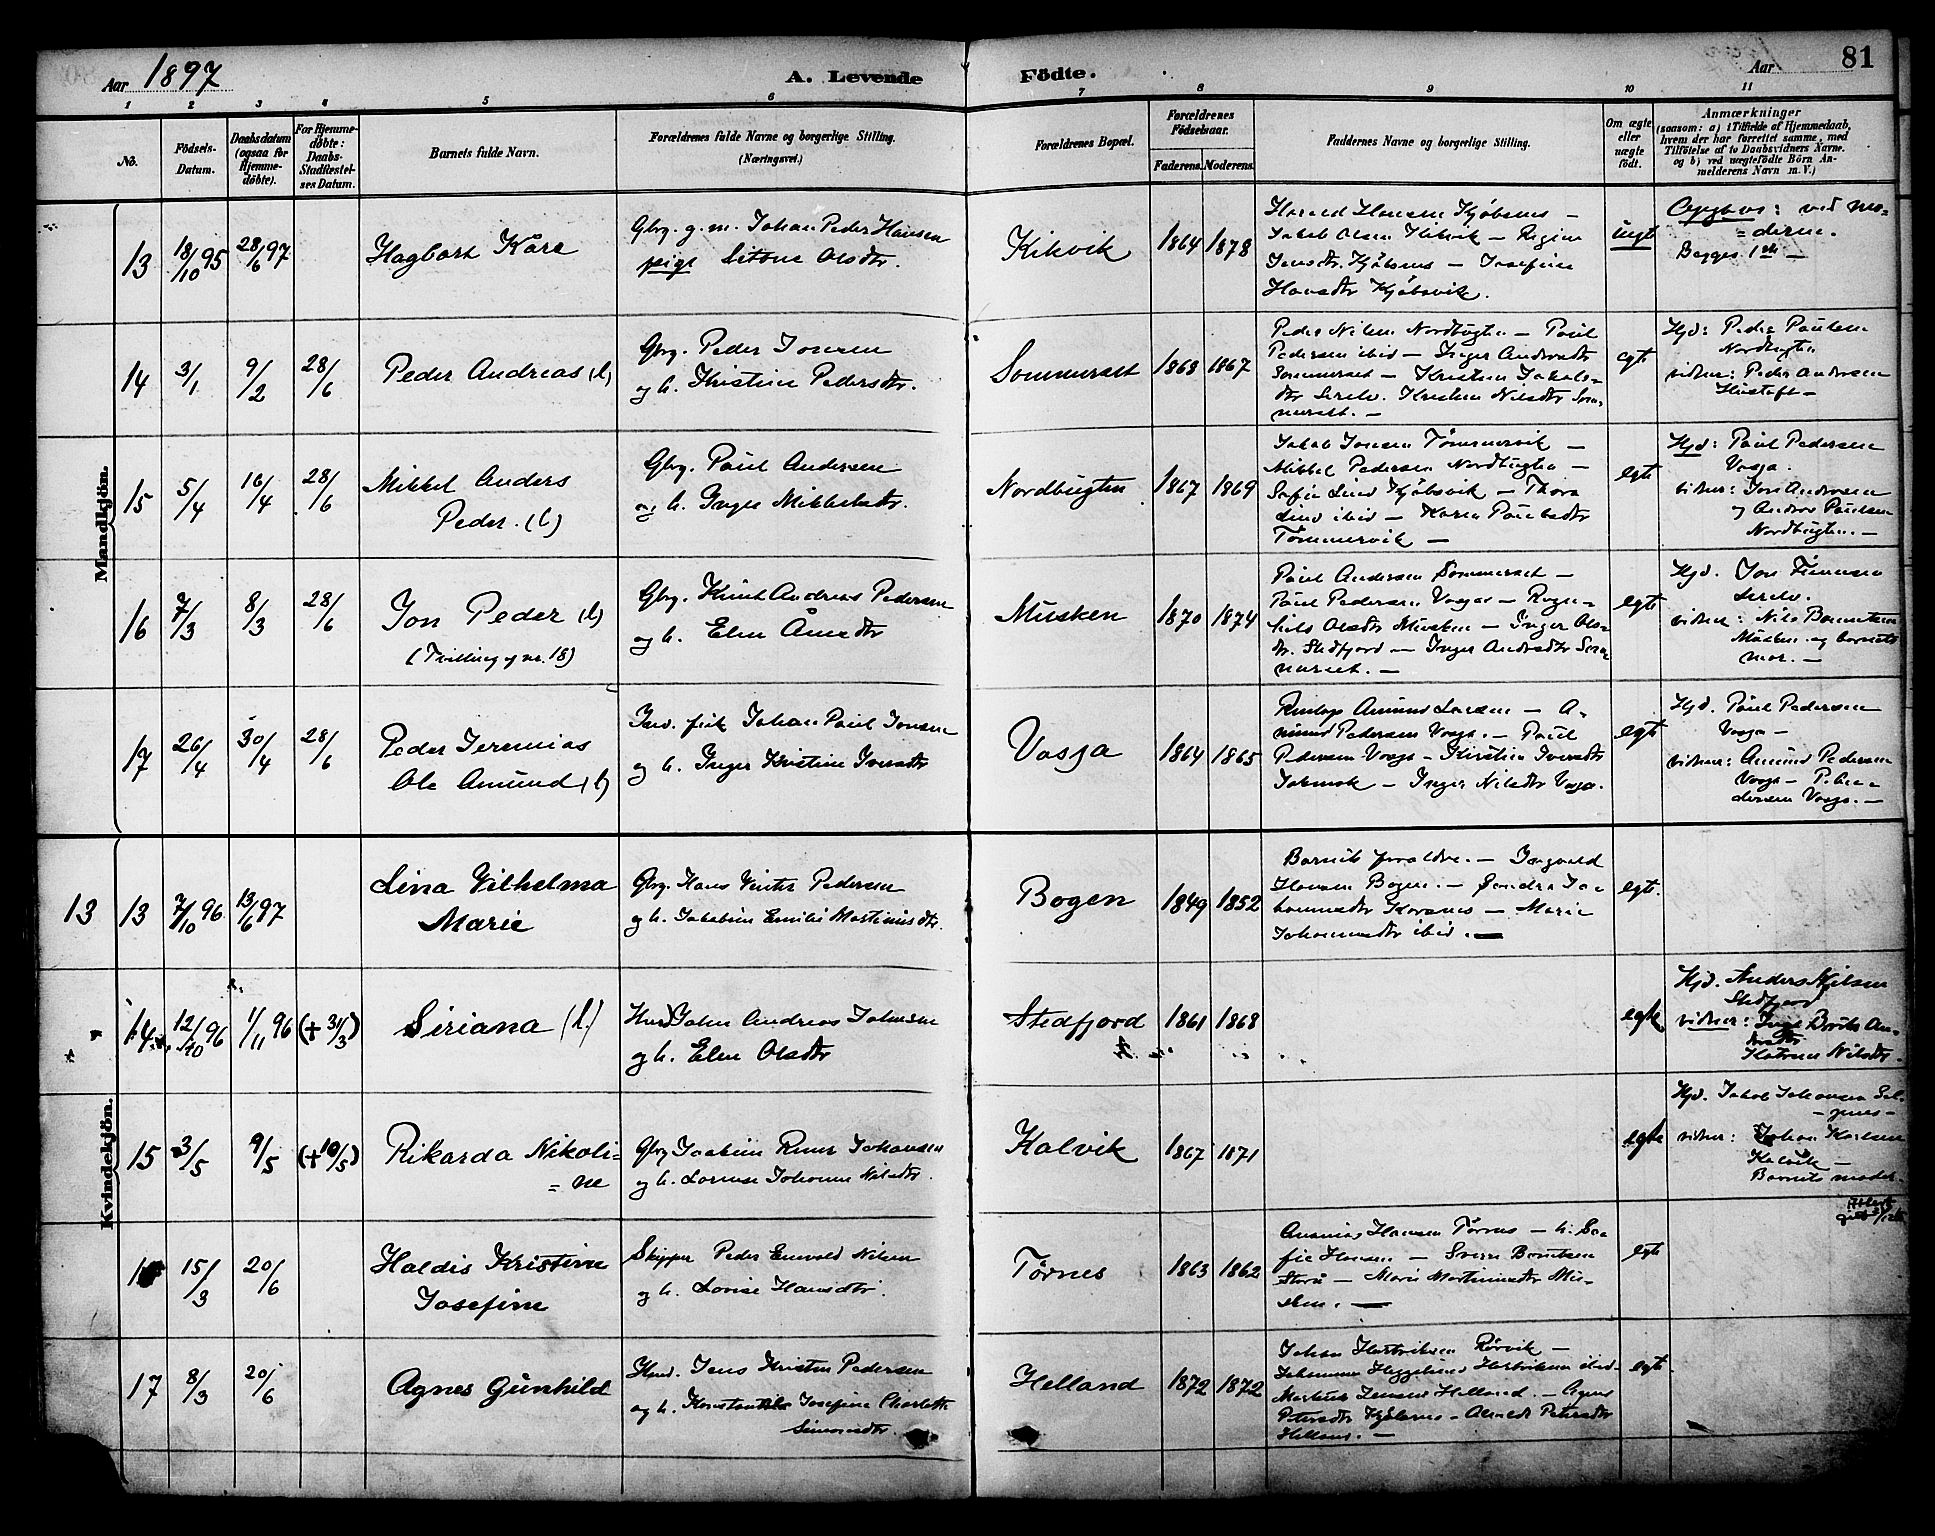 Aar 1897
A. Levende Födte.
Aar
81
1 2 3 4 5 6 7 8 9 10 11
No.
Födsels-
Datum.
Daabsdatum
(ogsaa for
Hjemme-
döbte).
For Hjemme-
döbte:
Daabs-
Stadfæstel-
ses Datum.
Barnets fulde Navn.
Forældrenes fulde Navne og borgerlige Stilling.
(Næringsvei.)
Forældrenes Bopæl.
Forældrenes
Födselsaar.
Faderens. Moderens.
Faddernes Navne og borgerlige Stilling.
Om ægte
eller
uægte
födt.
Anmærkninger
(saasom: a) i Tilfælde af Hjemmedaab,
hvem der har forrettet samme, med
Tilföielse af to Daabsvidners Navne.
og b) ved uægtefödte Börn An-
melderens Navn m. V.)
Mandkjön.
13 18/10 95 28/6 97
Hagbart Kåre
Gbrg. g. m. Johan Peder Hansen
pige Olsdtr.
Kikvik
1864 1878
Harald Hansen Kjöbsnes –
Jakob Olsen Kikvik –
Jensdtr. Kjöbsnes – Josefine
Hansdtr Kjöbsvik.
uegt
: ved mo-
= deren.
Begges 1ste –
14 3/1 9/2 28/6
Peder Andreas (l)
Gbrg. Peder Jonsen
og h. Kristine Pedersdtr.
Sommerset
1868 1867
Peder Nilsen Nordbugten – Paul
Pedersen ibid – Inger Andersdtr
Sommerset – Kristin Jakobs-
dtr – Nilsdtr Som-
merset. –
egt
Hjd: Peder Paulsen
Nordbugten
vidner: Peder Andersen
–
15 5/4 16/4 28/6
Mikkel Anders
Peder. (l)
Gbrg. Paul Andersen
og h. Inger Mikkelsdtr.
Nordbugten
1867 1869
Jakob Jonsen Tömmervik –
Mikkel Pedersen Nordbugten –
Sofie Lind Kjöbsvik – Thora
Lind ibid – Karen Paulsdtr
Tömmervik –
egte
Hjd: Paul Pedersen
Vasja.
vidner: Jon Andersen
og Andreas Paulsen
Nordbugten. –
16 7/3 8/3 28/6
Jon Peder (l)
(Tvilling af nr. 18)
Gbrg. Knut Andreas Pedersen
og h. Elen Åmsdtr
Musken
1870 1874
Paul Andersen Sommerset –
Paul Pedersen Vasja – Ragn-
Olsdtr Musken – Inger Ols-
dtr. Stedfjord – Inger Andersdtr Som-
merset. –
egte
Hjd. Jon
vidner: Nils
Musken og barnets
mor. –
17 26/4 30/4 28/6
Peder Jeremias
Ole Amund (l)
Johan Paul Jonsen
og h. Inger Kristine Iversdtr
Vasja
1864 1865
Amund Larsen – A-
mund Pedersen Vasja. – Paul
Pedersen Vasja – Kirstine Iversdtr
– Inger Nilsdtr Vasja.
egte
Hjd. Paul Pedersen
Vasja –
vidner: Amund Pedersen
Vasja – P. An-
dersen Vasja. –
Kvindekjön.
13
13 7/10 96 13/6 97
Lina Vilhelma
Marie
Gbrg. Hans Pedersen
og h. Jakobine Emilie Martinusdtr.
Bogen
1849 1852
Barnets forældre. – Ingvald
Hansen Bogen. – Jo-
hannesdtr Korsnes – Marie
Johannesdtr ibid. –
egte.
14 12/10 96 1/11 96 (+ 31/3)
Siriana (l.)
Husd. John Andreas Johnsen
og h. Elen Olsdtr
Stedfjord
1861 1868
egte
Hjd. Anders Nilsen
Stedfjord
vidner: An-
dersdtr
Katrine Nilsdtr.
15 3/5 9/5 (+ 10/5)
Rikarda Nikoli-
= ne
Gbrg Joakim Johansen
og h. Lorense Johanne Nilsdtr.
Kalvik
1867 1871
egte
Hjd. Jakob Johansen
– –
vidner: Johan Karlsen
Kalvik –
Barnets moder.
16 15/3 20/6
Haldis Kristine
Josefine
Skipper Peder Enevold Nilsen
og h. Lovise Hansdtr.
Tørnes
1863 1862
Ananias Hansen Tørnes – h. So-
fie Hansen – Sverre Berntsen
– Marie Martinusdtr
. –
egte
17 8/3 20/6
Agnes Gunhild
Husd. Jens Kristen Pedersen
og h. Josefine Charlotte
Simonsdtr.
Helland
1872 1872
Johan Hartviksen Rørvik –
Johannes Hartviksen ibid –
Markus Jensen Helland. – Agnes
Petersdtr Kjöbsnes – Petersdtr
Helland. –
egte